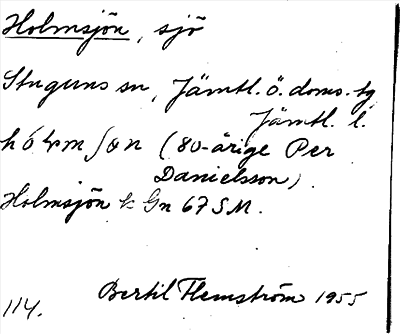 Holmsjön, sjö
Stuguns sn, Jämtl. ö. doms. tg
Jämtl. l.
(80-årige Per
Danielsson)
Holmsjön k Gn 67 SM.
114. Bertil Flemström 1955